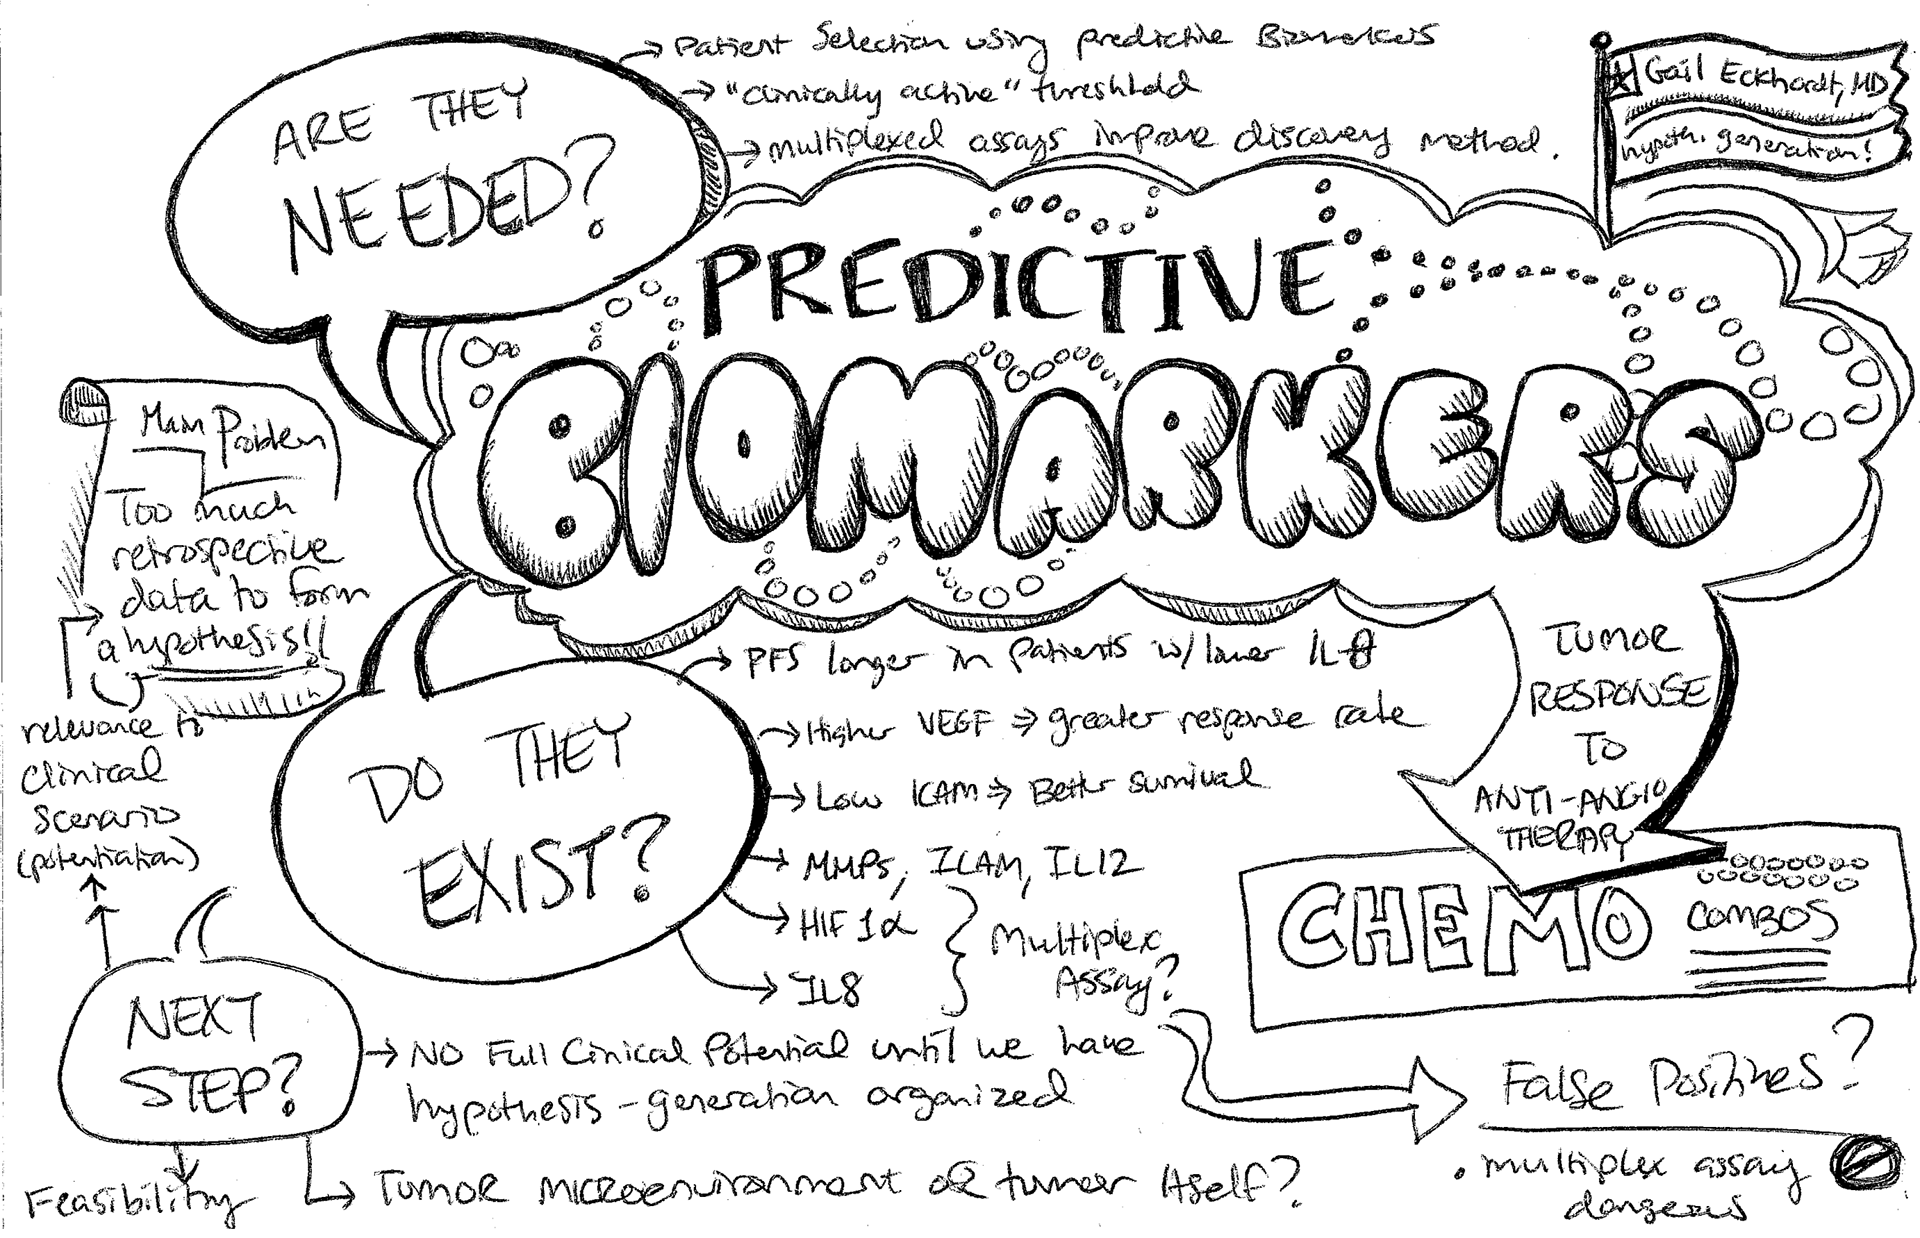 ARE THEY
NEEDED?
→ Patient Selection using predictive Biomarkers
→ "clinically active" threshold
→ multiplexed assays improve discovery method.
Gail Eckhardt, MD
hypoth. generation!
PREDICTIVE
BIOMARKERS
Main Problem
Too much
retrospective
data to form
a hypothesis!!
relevance to
clinical
Scenario
(potentiation)
DO THEY
EXIST?
→ PFS longer in patients w/ lower IL-8
→ Higher VEGF ⇒ greater response rate
→ Low ICAM ⇒ Better survival
→ MMPs, ICAM, IL12
→ HIF 1α
→ IL8
Multiplex
Assay?
TUMOR
RESPONSE
TO
ANTI-ANGIO
THERAPY
CHEMO
COMBOS
NEXT
STEP?
→ NO Full Clinical Potential until we have
hypothesis-generation organized
Feasibility
→ Tumor microenvironment OR tumor itself?
False Positives?
• multiplex assay
dangerous